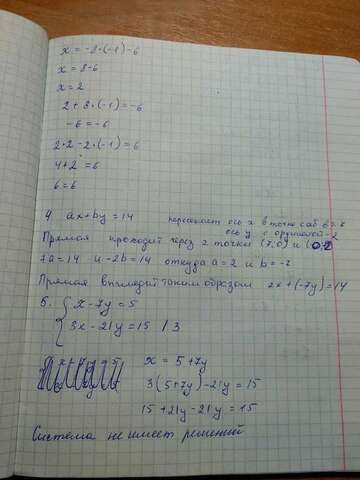 x = -8·(-1)-6
x = 8-6
x = 2
2 + 8·(-1) = -6
-6 = -6
2·2 - 2·(-1) = 6
4+2 = 6
6 = 6
4 ax+by = 14 пересекает ось x в точке с
ось y с ординатой -2
Прямая проходит через 2 точки (7,0) и (0-2
7a = 14 и -2b = 14 откуда a = 2 и b = -7
Прямая выглядит таким образом 2x + (-7y) = 14
5. { x - 7y = 5
3x - 21y = 15 / 3
x = 5+7y
3(5+7y) - 21y = 15
15 + 21y - 21y = 15
Система не имеет решений